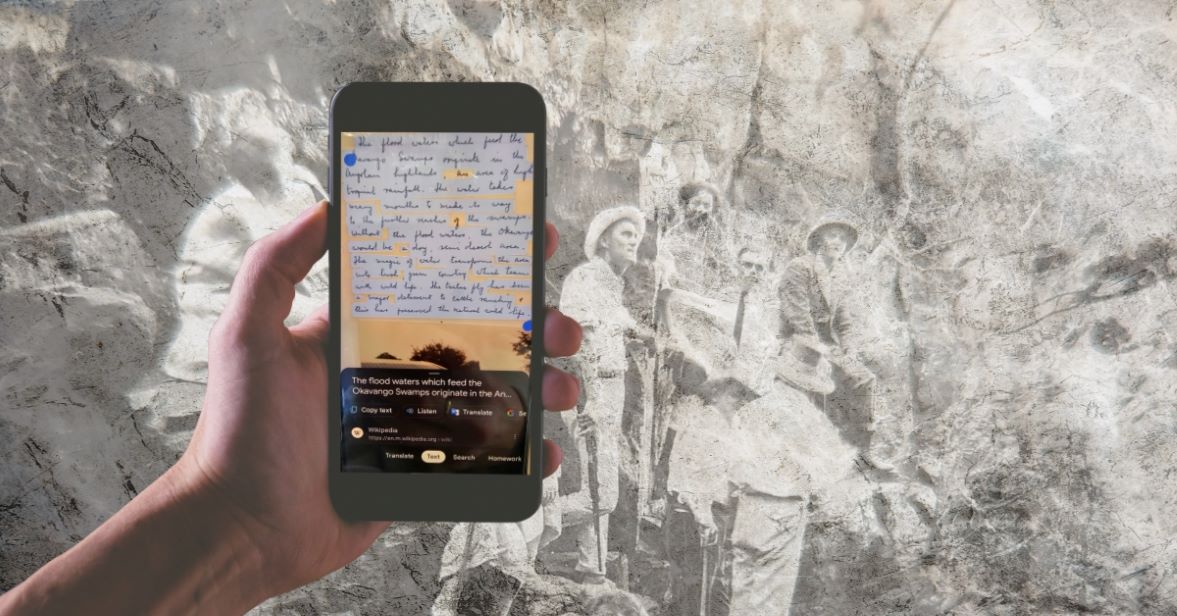 The flood waters which feed the
avango Swamps originate in the
Angolan highlands, an area of high
tropical rainfall. The water takes
many months to make its way
to the further reaches of the swamps.
Without the flood waters, the Okavango
would be a dry, semi desert area.
The magic of water transforms the area
into lush, green country which teems
with wild life. The tsetse fly has been
a major deterrent to cattle ranching &
this has preserved the natural wild life.
The flood waters which feed the
Okavango Swamps originate in the An...
Copy text Listen Translate Se
W Wikipedia
https://en.m.wikipedia.org › wiki
Translate Text Search Homework